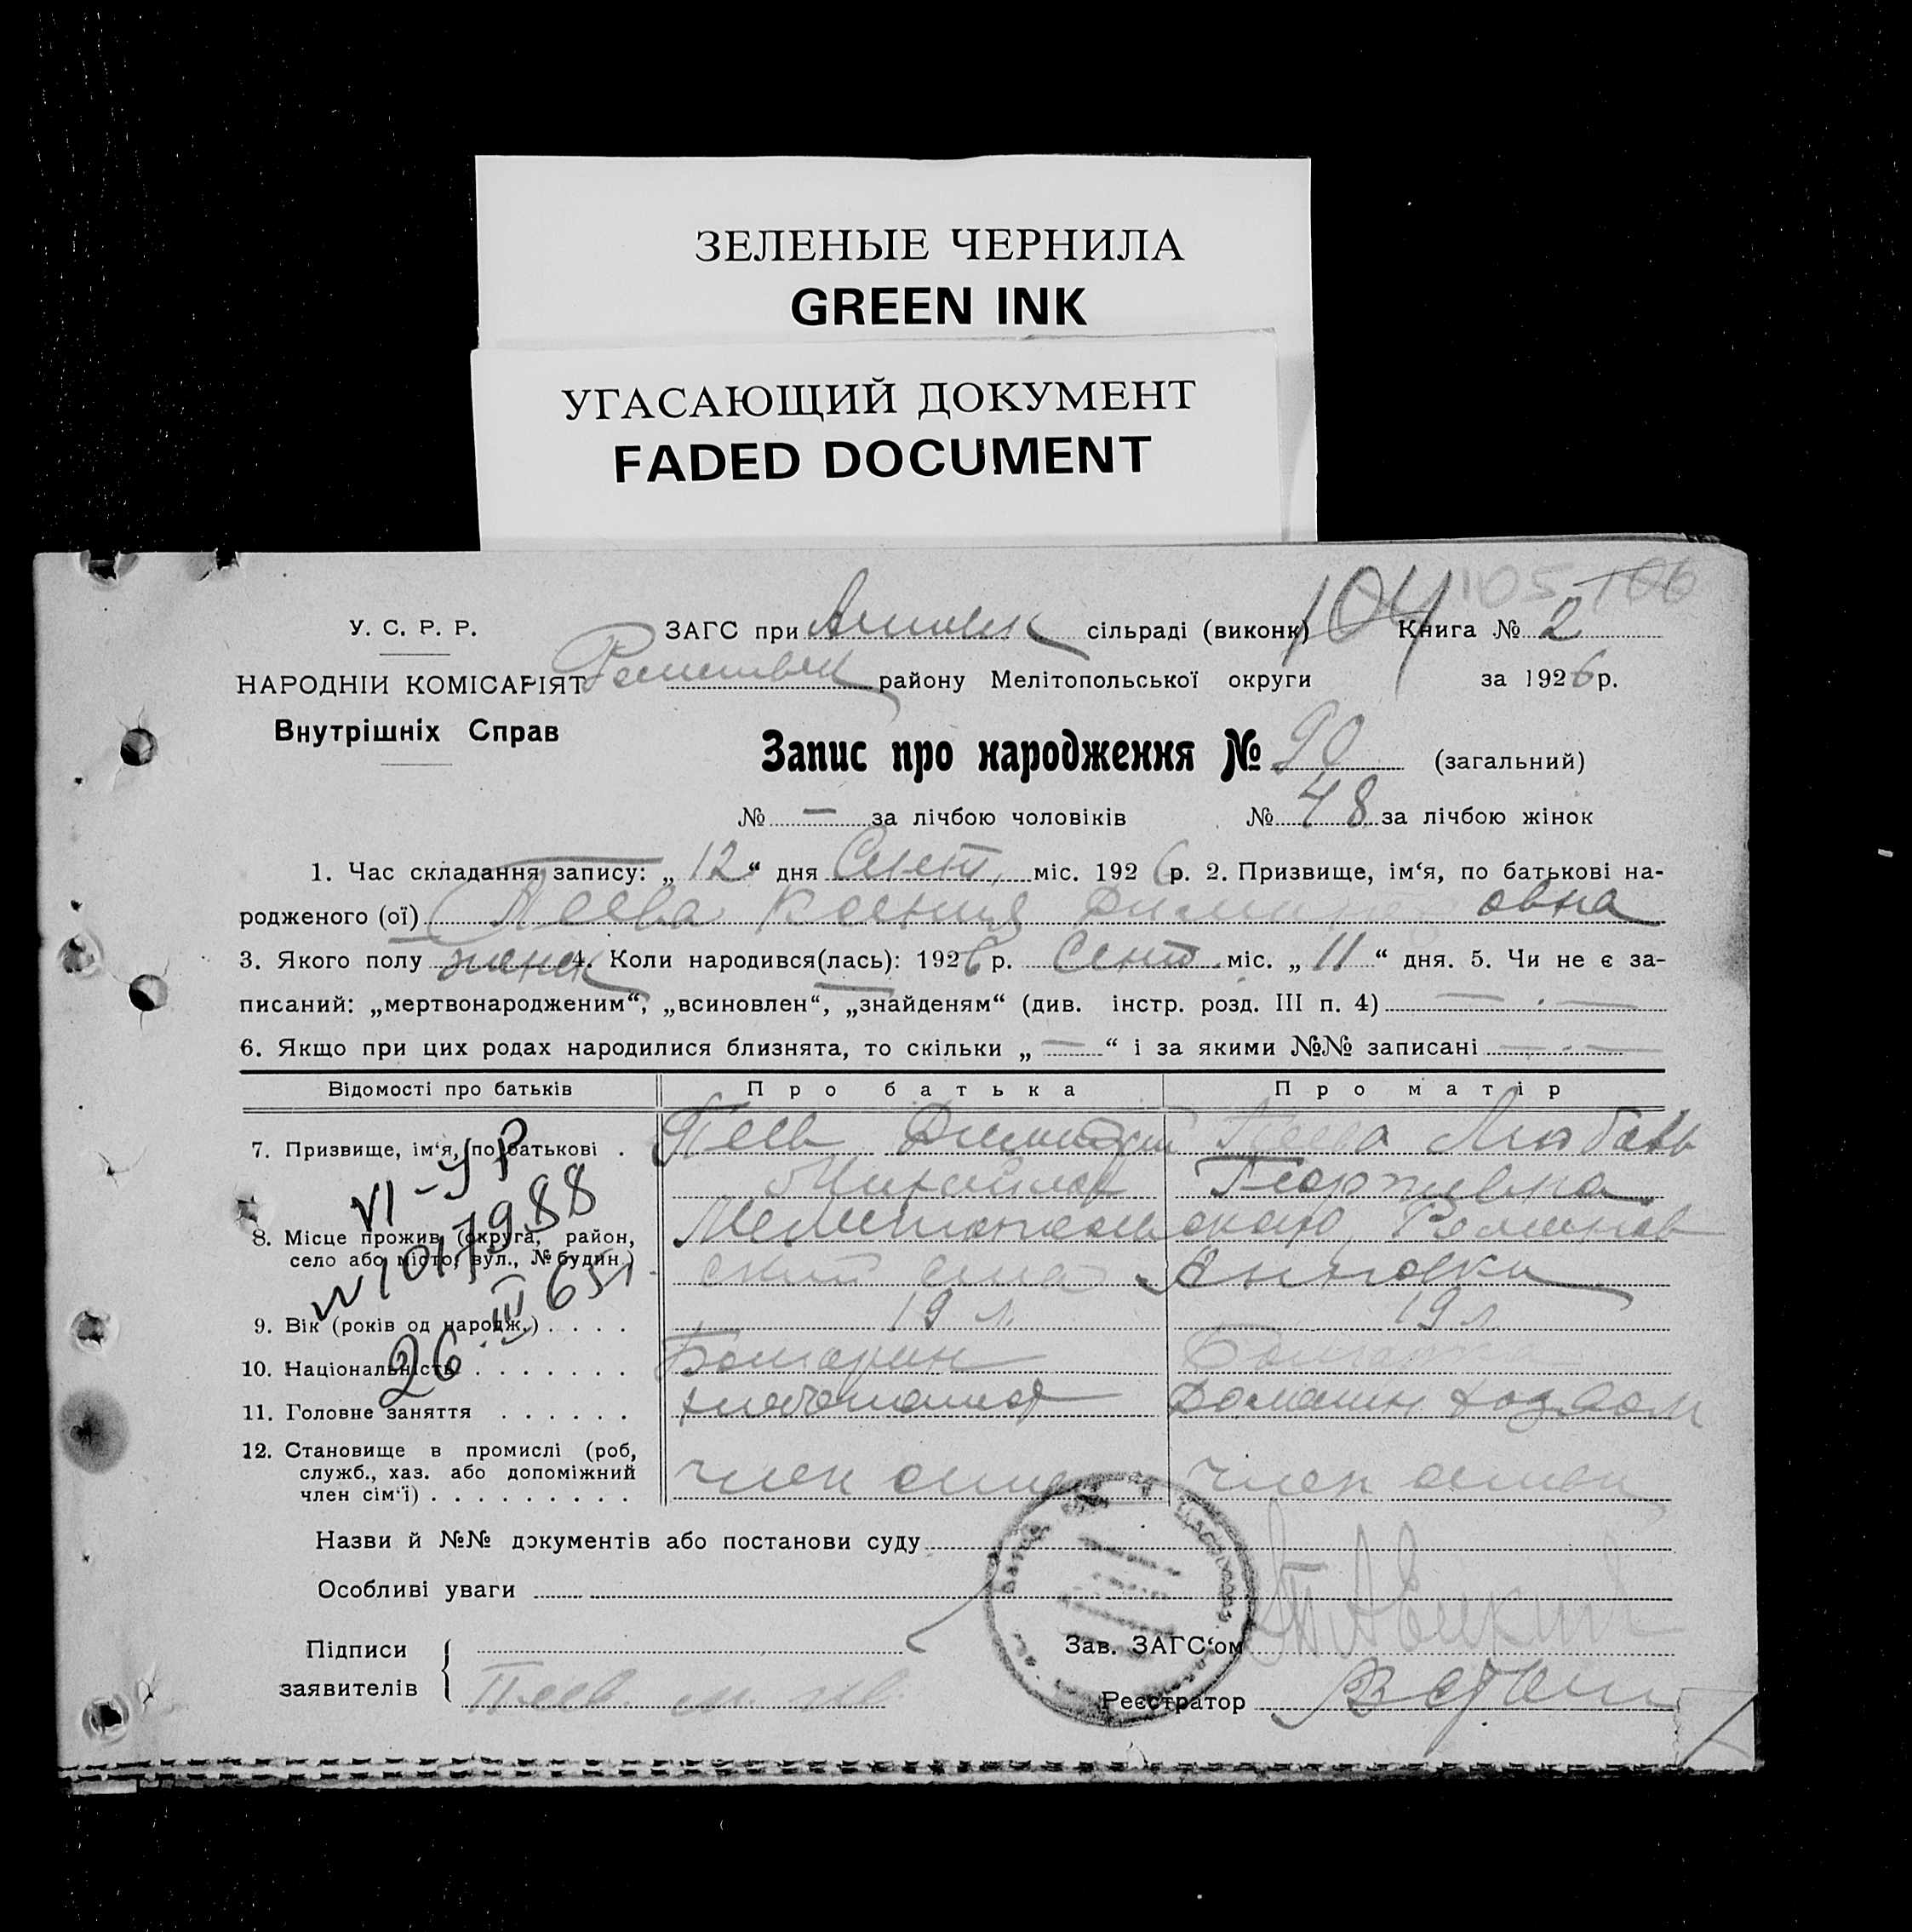 ЗЕЛЕНЫЕ ЧЕРНИЛА
GREEN INK
УГАСАЮЩИЙ ДОКУМЕНТ
FADED DOCUMENT
104 105 106
У. С. Р. Р.
ЗАГС при сільраді (виконк) Книга № 2
НАРОДНІЙ КОМІСАРІЯТ району Мелітопольської округи за 1926 р.
Внутрішніх Справ
Запис про народження № 90 (загальний)
№ — за лічбою чоловіків № 48 за лічбою жінок
1. Час складання запису: „ 12 “ дня Сент. міс. 1926 р. 2. Призвище, ім‘я, по батькові на-
родженого (ої) Пеева Ксения овна
3. Якого полу женск 4. Коли народився(лась): 1926 р. Сент. міс. „ 11 “ дня. 5. Чи не є за-
писаний: „мертвонародженим“, „всиновлен“, „знайденям“ (див. інстр. розд. III п. 4) — . —
6. Якщо при цих родах народилися близнята, то скільки „ — “ і за якими №№ записані — . —
Відомості про батьків Про батька Про матір
7. Призвище, ім‘я, по батькові . Пеев Димитрий Пеева Любовь
Михайлов Георгиевна
8. Місце прожив. (округа, район,
село або місто, вул., № будин.)
VI-УР
№ 017988
26.III 651
9. Вік (років од народж.) . . . . 19 л. 19 л.
10. Національність . . . . . . . Болгарин Болгарка
11. Головне заняття . . . . . . хлебопашеф Домашн хозяом
12. Становище в промислі (роб,
служб., хаз. або допоміжний
член сім‘ї) . . . . . . . . . член семьи член семьи
Назви й №№ документів або постанови суду
Особливі уваги
Підписи
заявителів Пеев
Зав. ЗАГС‘ом
Реєстратор